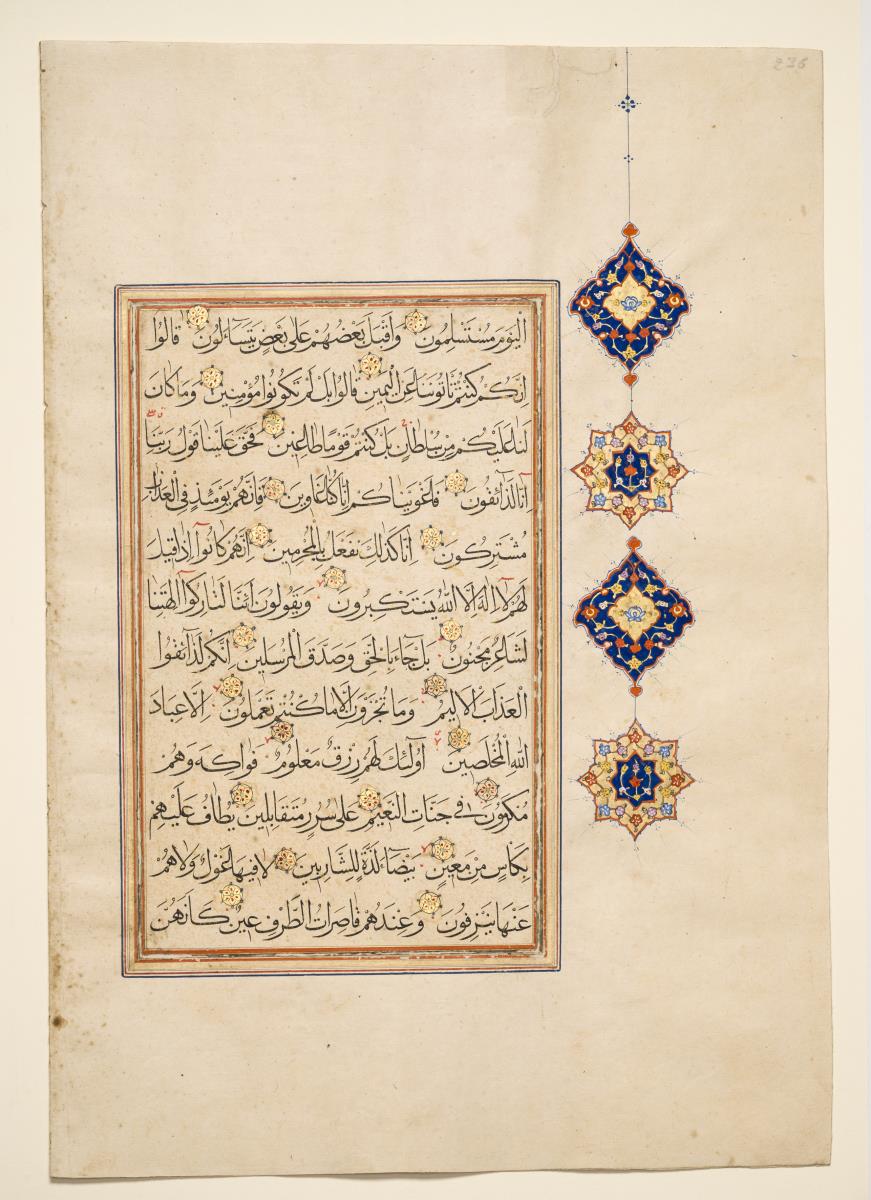 236
الْيَوْمَ مُسْتَسْلِمُونَ وَاَقْبَلَ بَعْضُهُمْ عَلٰى بَعْضٍ يَتَسَآءَلُونَ قَالُوا
اِنَّكُمْ كُنْتُمْ تَاْتُونَنَا عَنِ الْيَمِينِ قَالُوا بَلْ لَمْ تَكُونُوا مُؤْمِنِينَ وَمَا كَانَ
لَنَا عَلَيْكُمْ مِنْ سُلْطَانٍ بَلْ كُنْتُمْ قَوْمًا طَاغِينَ فَحَقَّ عَلَيْنَا قَوْلُ رَبِّنَا
اِنَّا لَذَآئِقُونَ فَاَغْوَيْنَاكُمْ اِنَّا كُنَّا غَاوِينَ فَاِنَّهُمْ يَوْمَئِذٍ فِى الْعَذَابِ
مُشْتَرِكُونَ اِنَّا كَذٰلِكَ نَفْعَلُ بِالْمُجْرِمِينَ اِنَّهُمْ كَانُوآ اِذَا قِيلَ
لَهُمْ لَآ اِلٰهَ اِلَّا اللّٰهُ يَسْتَكْبِرُونَ وَيَقُولُونَ اَئِنَّا لَتَارِكُوآ اٰلِهَتِنَا
لِشَاعِرٍ مَجْنُونٍ بَلْ جَآءَ بِالْحَقِّ وَصَدَّقَ الْمُرْسَلِينَ اِنَّكُمْ لَذَآئِقُوا
الْعَذَابِ الْاَلِيمِ وَمَا تُجْزَوْنَ اِلَّا مَا كُنْتُمْ تَعْمَلُونَ اِلَّا عِبَادَ
اللّٰهِ الْمُخْلَصِينَ اُولٰٓئِكَ لَهُمْ رِزْقٌ مَعْلُومٌ فَوَاكِهُ وَهُمْ
مُكْرَمُونَ فِى جَنَّاتِ النَّعِيمِ عَلٰى سُرُرٍ مُتَقَابِلِينَ يُطَافُ عَلَيْهِمْ
بِكَاْسٍ مِنْ مَعِينٍ بَيْضَآءَ لَذَّةٍ لِلشَّارِبِينَ لَا فِيهَا غَوْلٌ وَلَا هُمْ
عَنْهَا يُنْزَفُونَ وَعِنْدَهُمْ قَاصِرَاتُ الطَّرْفِ عِينٌ كَاَنَّهُنَّ